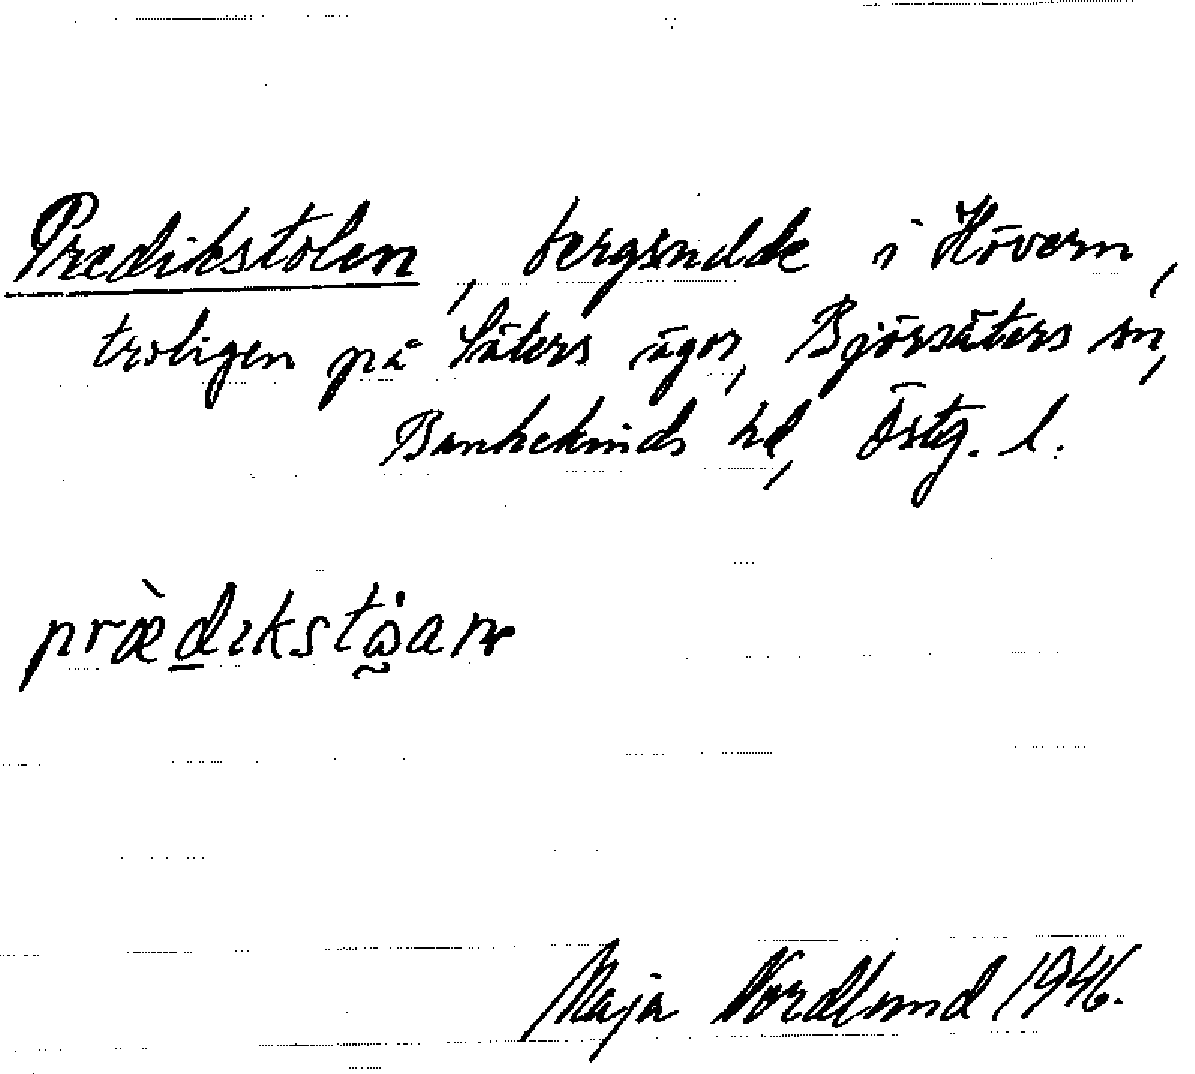 Predikstolen, bergsudde i Hövern,
troligen på Säters ägor, Björsäters sn,
Bankekinds hd, Östg. l.
præ̀d̲ıkstω̰̇an
Maja Nordlund 1946.